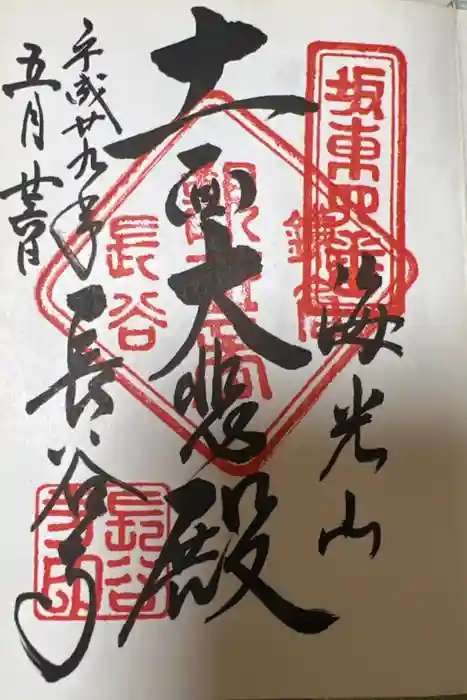 坂東四番
海光山
鎌倉
十一面大悲殿
長谷
平成廿九年
長谷寺
五月
長谷寺印